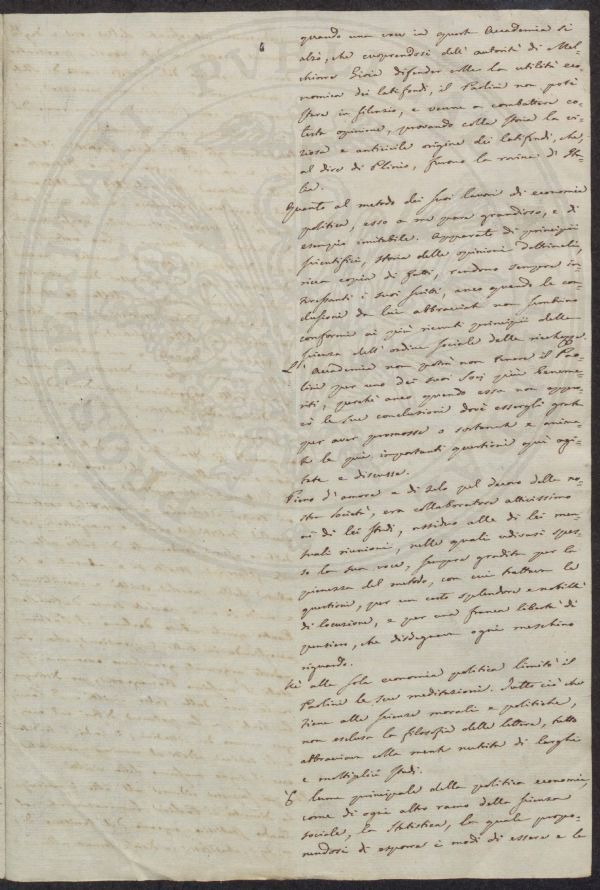 6
quando una voce in quest'Accademia si
alzò, che cuoprendosi dell'autorità di Mel-
chiorre Gioia difender volle la utilità eco-
nomica dei latifondi, il Paolini non potè
stare in silenzio, e venne a combattere co-
testa opinione, provando colla storia la vi-
ziosa e anticivile origine dei latifondi, che,
al dire di Plinio, furono la rovina d'Ita-
lia.
Quanto al metodo dei suoi lavori di economia
politica, esso a me pare grandioso, e di
esempio imitabile. Apparato di principii
scientifici, storia delle opinioni dottrinali,
ricca copia di fatti, rendono sempre in-
teressanti i suoi scritti, anco quando le con-
clusioni da lui abbracciate non sembrino
conformi ai più recenti principii della
scienza dell'ordine sociale delle ricchezze.
L'Accademia non potrà non tenere il Pao-
lini per uno dei suoi Socj più beneme-
riti, perchè anco quando essa non appro-
vi le sue conclusioni dovrà essergli grata
per aver promosse o sostenute e anima-
te le più importanti questioni qui agi-
tate e discusse.
Pieno d'amore e di zelo pel decoro della no-
stra società, era collaboratore attivissimo
ai di lei studj, assiduo alle di lei men-
suali riunioni, nelle quali udivasi spes-
so la sua voce, sempre gradita per la
pienezza del metodo, con cui trattava le
questioni, per un certo splendore e nobiltà
di locuzione, e per una franca libertà di
pensiero, che disdegnava ogni meschino
riguardo.
Nè alla sola economia politica limitò il
Paolini le sue meditazioni. Tutto ciò che
tiene alle scienze morali e politiche,
non esclusa la filosofia delle lettere, tutto
abbracciava colla mente nutrita di larghi
e molteplici studj.
È lume principale della politica economia,
come di ogni altro ramo della scienza
sociale, la Statistica, la quale propo-
nendosi di esporre i modi di essere e le